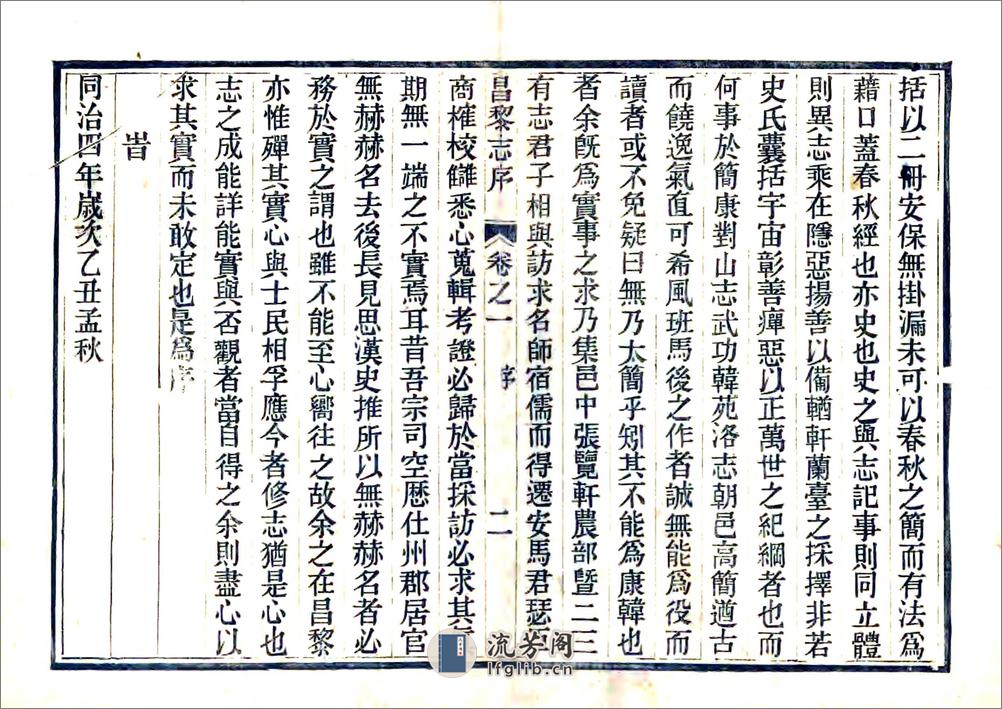 括以二冊安保無掛漏未可以春秋之簡而有法爲
藉口蓋春秋經也亦史也史之與志記事則同立體
則異志乘在隱惡揚善以備輶軒蘭臺之採擇非若
史氏囊括宇宙彰善癉惡以正萬世之紀綱者也而
何事於簡康對山志武功韓苑洛志朝邑高簡遒古
而饒逸氣直可希風班馬後之作者誠無能爲役而
讀者或不免疑曰無乃太簡乎矧其不能爲康韓也
者余旣爲實事之求乃集邑中張覽軒農部曁二三
有志君子相與訪求名師宿儒而得遷安馬君瑟
昌黎志序 卷之一 序 二
商榷校讎悉心蒐輯考證必歸於當採訪必求其
期無一端之不實焉耳昔吾宗司空歷仕州郡居官
無赫赫名去後長見思漢史推所以無赫赫名者必
務於實之謂也雖不能至心嚮往之故余之在昌黎
亦惟殫其實心與士民相孚應今者修志猶是心也
志之成能詳能實與否觀者當自得之余則盡心以
求其實而未敢定也是爲序
旹
同治四年歲次乙丑孟秋
流芳阁
lfglib.cn